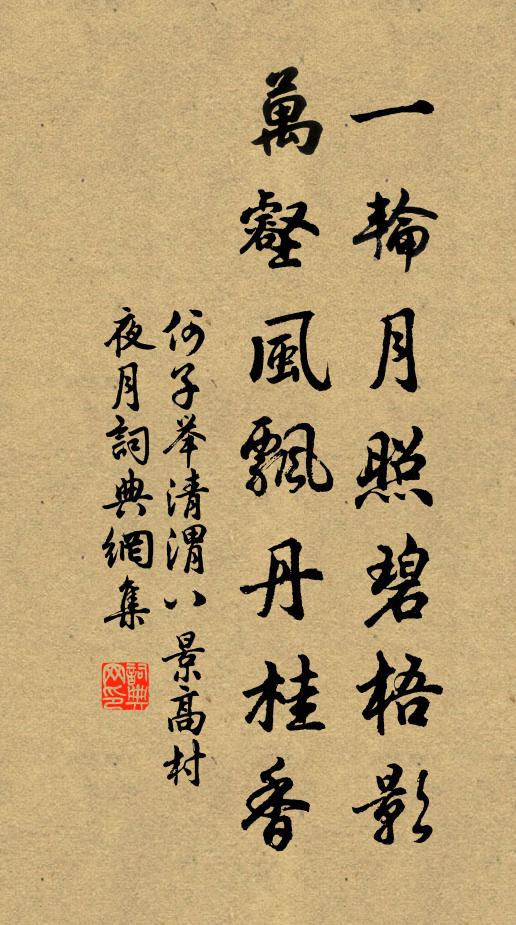 一輪月照碧梧影
萬壑風飄丹桂香
何子举清渭八景高村
夜月詞典網集
詞典網印